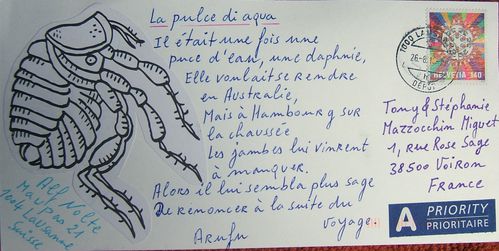 La pulce di aqua
Il était une fois une
puce d'eau, une daphnie,
Elle voulait se rendre
en Australie,
Mais à Hambourg sur
la chaussée
Les jambes lui vinrent
à manquer.
Alors il lui sembla plus sage
De renoncer à la suite du
voyage.
Alf Nolte
Mau Pas 21
1004 Lausanne
Suisse
1000 LA
26-8
DÉPÔT
HELVETIA 140
Tony & Stéphanie
Mazzocchin Miguet
1, rue Rose Sage
38500 Voiron
France
A PRIORITY
PRIORITAIRE